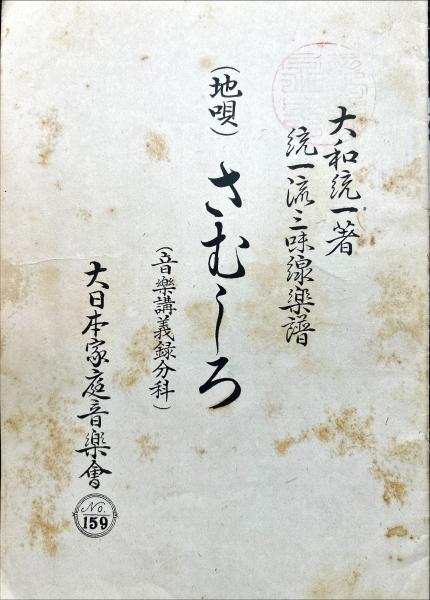 大和統一著
統一流三味線樂譜
(地唄) さむしろ
(音樂講義録分科)
大日本家庭音樂會
No. 159